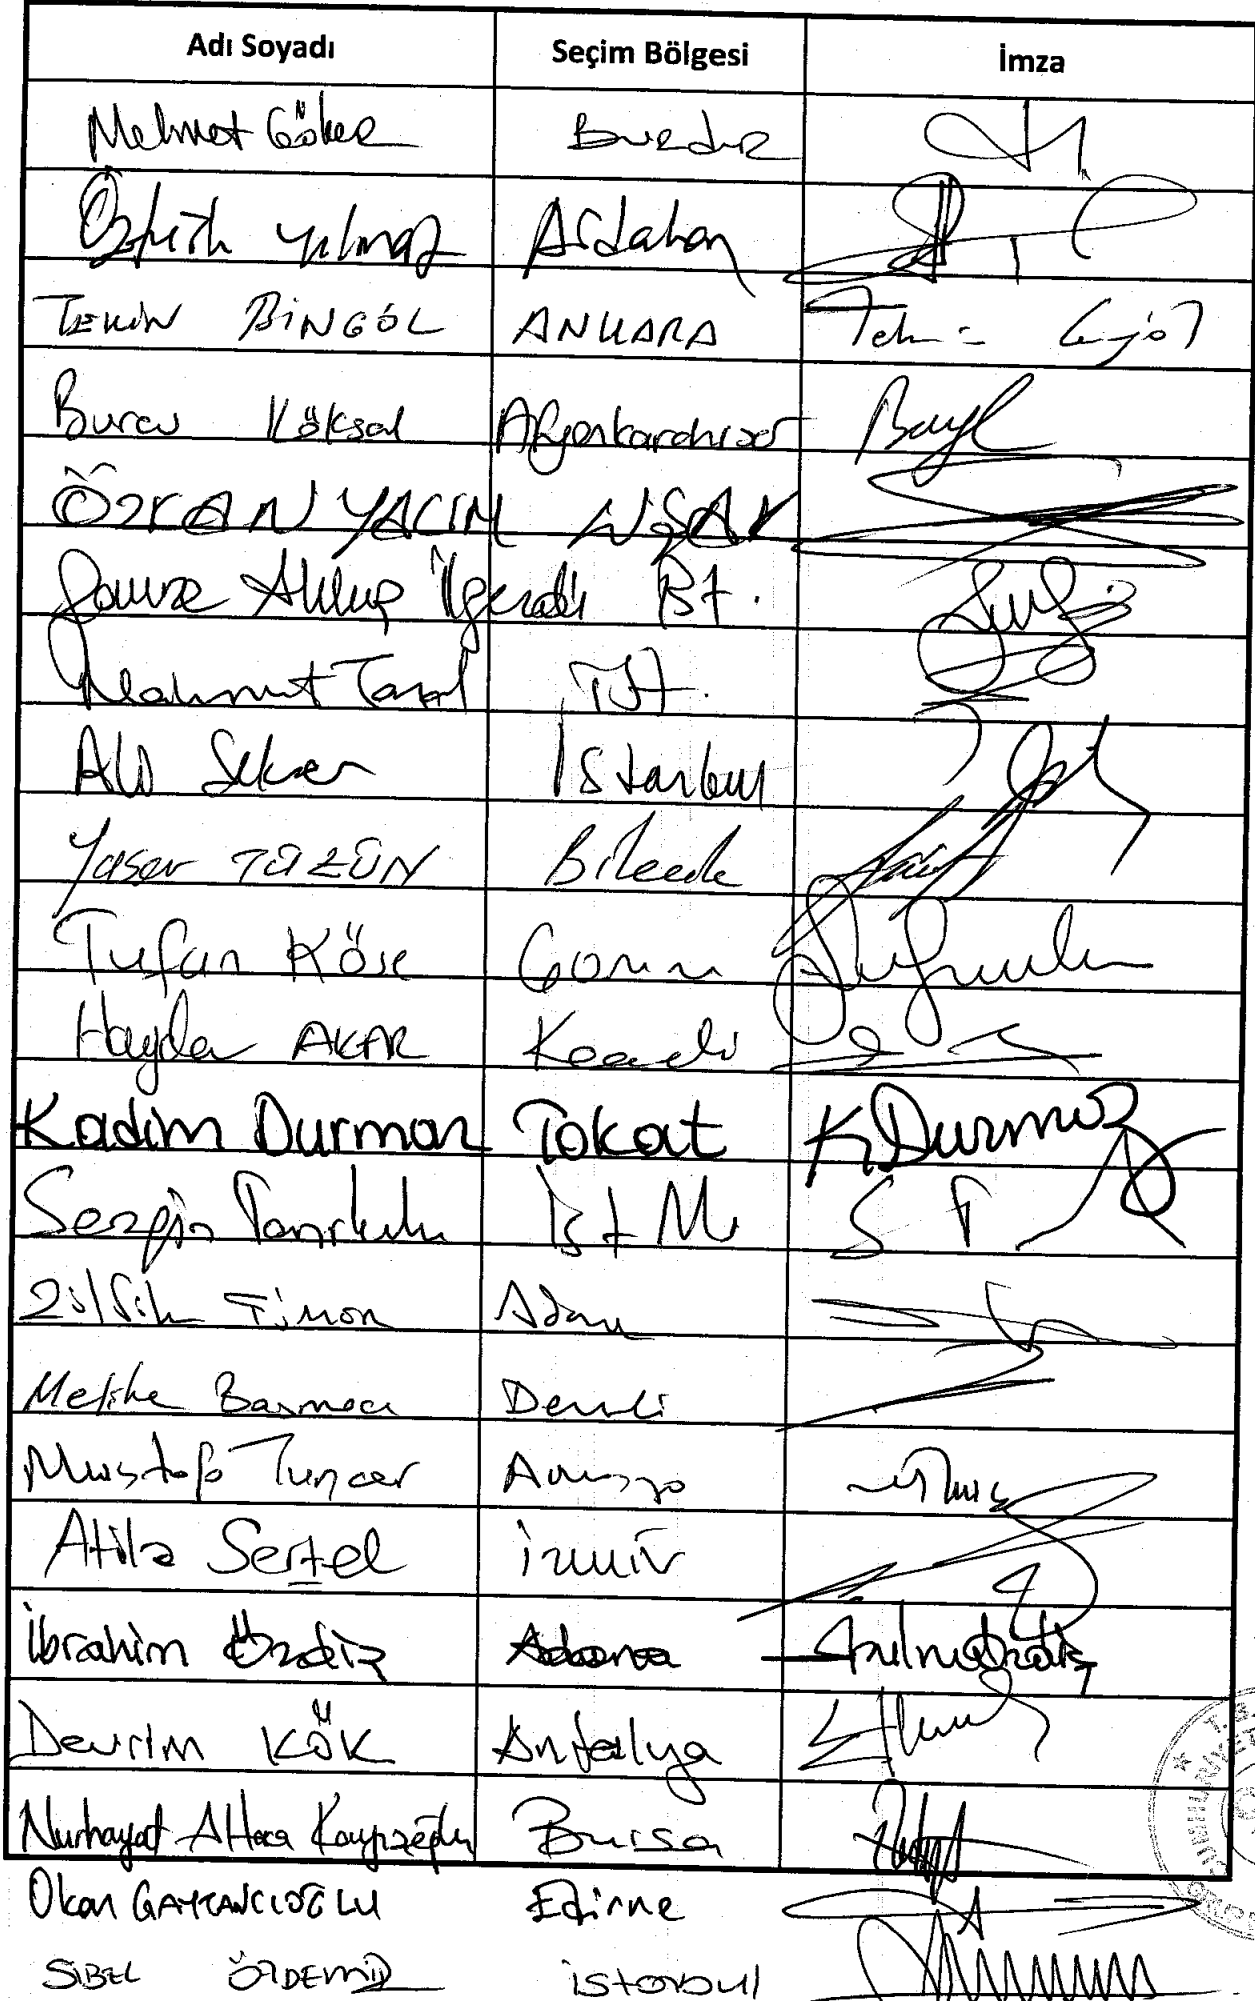 Adı Soyadı Seçim Bölgesi İmza
Mehmet Göker Burdur
Öztürk Yılmaz Ardahan
TEKİN BİNGÖL ANKARA
Burcu Köksal Afyonkarahisar
ÖZKAN YALIM UŞAK
Gamze Akkuş İlgezdi İst.
Mahmut Tanal İst.
Ali Şeker İstanbul
Yaşar TÜZÜN Bilecik
Tufan Köse Çorum
Haydar AKAR Kocaeli
Kadim Durmaz Tokat K Durmaz
Sezgin Tanrıkulu İst M
Zülfik Tümor Adana
Melike Basmacı Denizli
Mustafa Tuncer Amasya
Atila Sertel İzmir
İbrahim Özdiş Adana
Devrim KÖK Antalya
Nurhayat Altaca Kayışoğlu Bursa
Okan GAYTANCIOĞLU Edirne
SİBEL ÖZDEMİR İstanbul